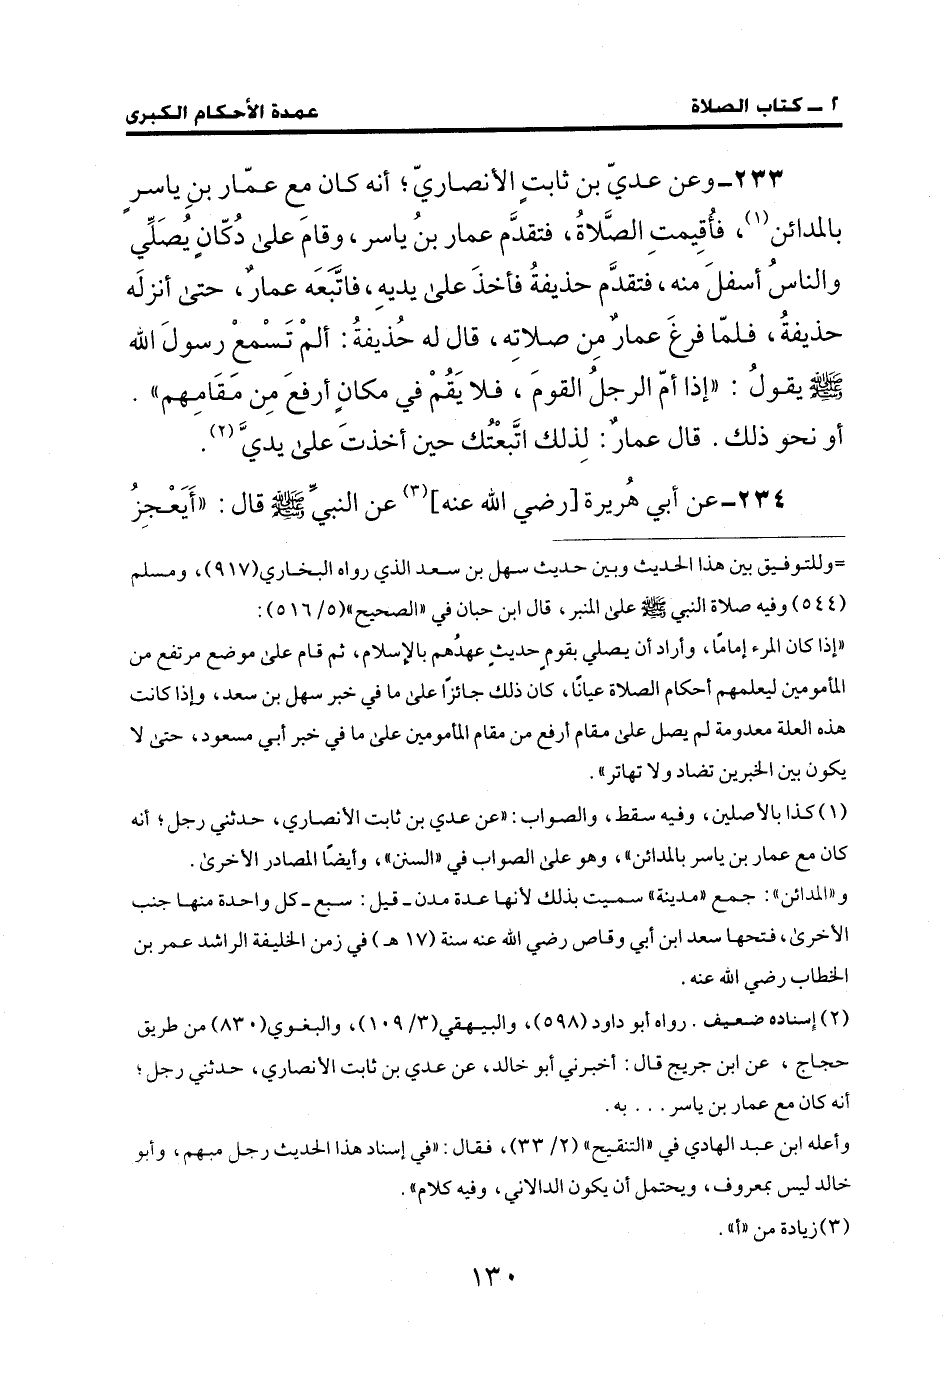 ٢ ــ كتاب الصلاة
عمدة الأحكام الكبرى
٢٣٣ــ وعن عديّ بن ثابتٍ الأنصاريّ؛ أنه كان مع عمّار بنِ ياسرٍ
بالمدائن(١)، فأُقيمتِ الصَّلاةُ، فتقدَّم عمار بنُ ياسر، وقامَ علىٰ دُكّانٍ يُصَلِّي
والناسُ أسفلَ منه، فتقدَّم حذيفةُ فأخذَ علىٰ يديهِ، فاتَّبَعَه عمارٌ، حتىٰ أنزلَه
حذيفةُ، فلمّا فرغَ عمارٌ مِن صلاتِه، قال له حُذيفةُ: ألمْ تَسْمعْ رسولَ الله
ﷺ يقولُ: «إذا أمّ الرجلُ القومَ، فلا يَقُمْ في مكانٍ أرفعَ مِن مَقَامِهم».
أو نحو ذلك. قال عمارٌ: لِذلك اتَّبعْتُك حين أخذتَ علىٰ يديَّ(٢).
٢٣٤ــ عن أبي هُريرة [رضي الله عنه](٣) عن النبيِّ ﷺ قال: «أَيَعْجِزُ
=وللتوفيق بين هذا الحديث وبين حديث سهل بن سعد الذي رواه البخاري(٩١٧)، ومسلم
(٥٤٤) وفيه صلاة النبي ﷺ علىٰ المنبر، قال ابن حبان في «الصحيح»(٥/ ٥١٦):
«إذا كان المرء إمامًا، وأراد أن يصلي بقومٍ حديثٍ عهدُهم بالإسلام، ثم قام علىٰ موضع مرتفع من
المأمومين ليعلمهم أحكام الصلاة عيانًا، كان ذلك جائزًا علىٰ ما في خبر سهل بن سعد، وإذا كانت
هذه العلة معدومة لم يصل علىٰ مقام أرفع من مقام المأمومين علىٰ ما في خبر أبي مسعود، حتىٰ لا
يكون بين الخبرين تضاد ولا تهاتر».
(١) كذا بالأصلين، وفيه سقط، والصواب: «عن عدي بن ثابت الأنصاري، حدثني رجل؛ أنه
كان مع عمار بن ياسر بالمدائن»، وهو علىٰ الصواب في «السنن»، وأيضًا المصادر الأخرىٰ.
و«المدائن»: جمع «مدينة» سميت بذلك لأنها عدة مدن ــ قيل: سبع ــ كل واحدة منها جنب
الأخرىٰ، فتحها سعد ابن أبي وقاص رضي الله عنه سنة (١٧ هـ) في زمن الخليفة الراشد عمر بن
الخطاب رضي الله عنه.
(٢) إسناده ضعيف. رواه أبو داود (٥٩٨)، والبيهقي(٣/ ١٠٩)، والبغوي(٨٣٠) من طريق
حجاج، عن ابن جريج قال: أخبرني أبو خالد، عن عدي بن ثابت الأنصاري، حدثني رجل؛
أنه كان مع عمار بن ياسر . . . به.
وأعله ابن عبد الهادي في «التنقيح» (٢/ ٣٣)، فقال: «في إسناد هذا الحديث رجل مبهم، وأبو
خالد ليس بمعروف، ويحتمل أن يكون الدالاني، وفيه كلام».
(٣) زيادة من «أ».
١٣٠